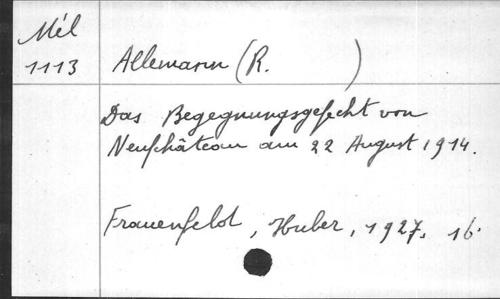 Mél
1113
Allemann (R. )
Das Begegnungsgefecht von
Neufchâteau am 22 August 1914.
Frauenfeld, Huber, 1927. 16.